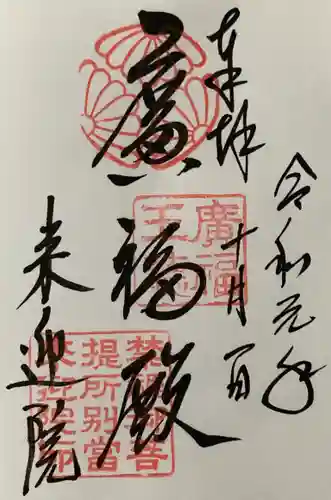 奉拝
令和元年
十月一日
廣福殿
来迎院
廣福
提所別當
来迎院印